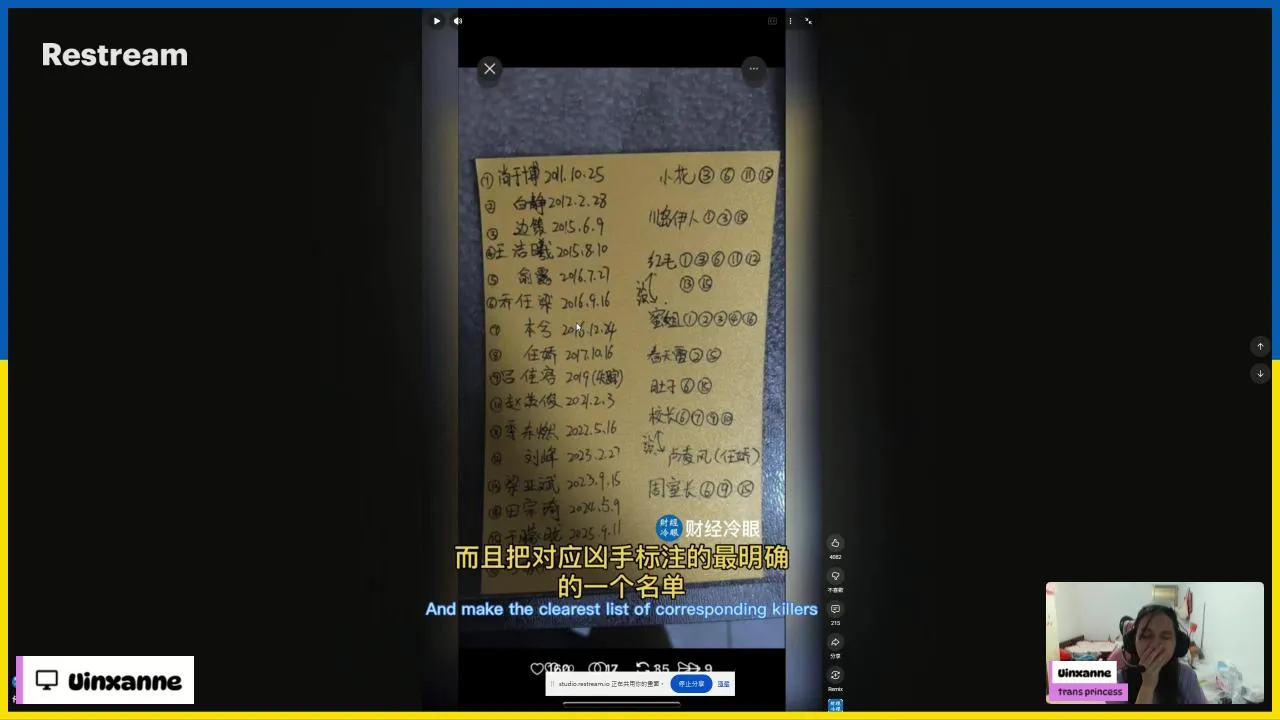 Restream
①尚于博 2011.10.25
② 白静 2012.2.28
③ 边策 2015.6.9
④王浩曦 2015.8.10
⑤ 俞露 2016.7.27
⑥乔任梁 2016.9.16
⑦ 本兮 2016.12.24
⑧ 任娇 2017.10.16
⑨吕佳容 2019(失踪)
⑩赵英俊 2021.2.3
⑪李东燃 2022.5.16
⑫ 刘峰 2023.2.27
⑬梁亚斌 2023.9.15
⑭田宗琦 2024.5.9
⑮于朦胧 2025.9.11
小花③⑥⑪⑮
川岛伊人①③⑮
红毛①③⑥⑪⑫
⑬⑮
蜜姐①②③④⑥
春天雷②⑤
肚子⑥⑮
校长⑥⑦⑨⑩
卢凌风(任娇)
周室长⑥⑨⑮
财经冷眼
财经冷眼
而且把对应凶手标注的最明确
的一个名单
And make the clearest list of corresponding killers
17
35
9
studio.restream.io 正在共用你的画面。
停止分享
隐藏
4082
不喜欢
215
分享
Remix
Uinxanne
Uinxanne
trans princess